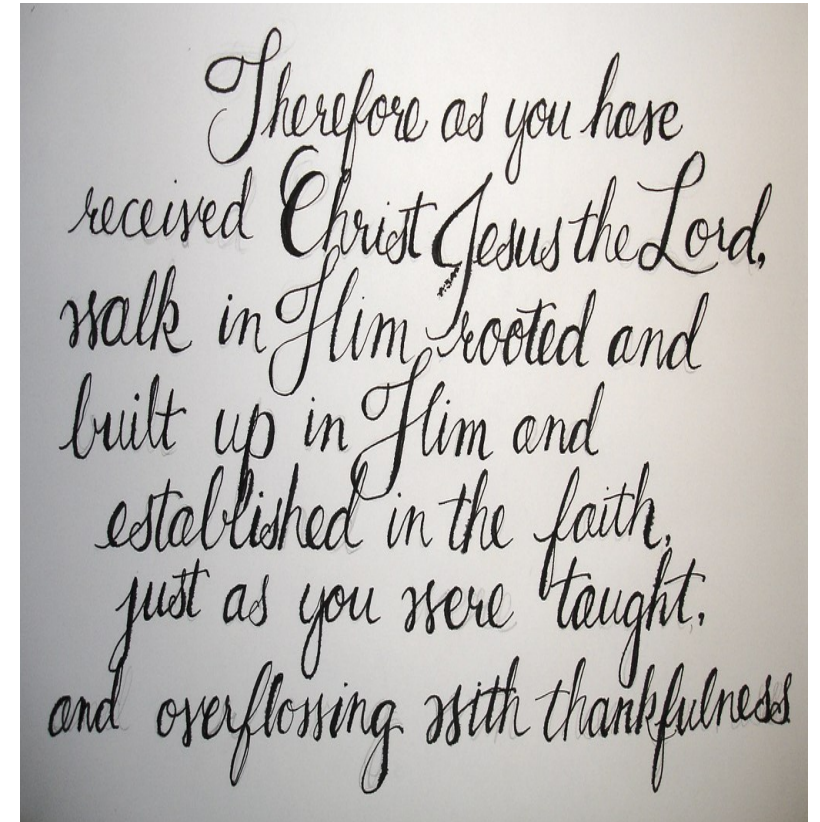 Therefore as you have
received Christ Jesus the Lord,
walk in Him rooted and
built up in Him and
established in the faith,
just as you were taught,
and overflowing with thankfulness